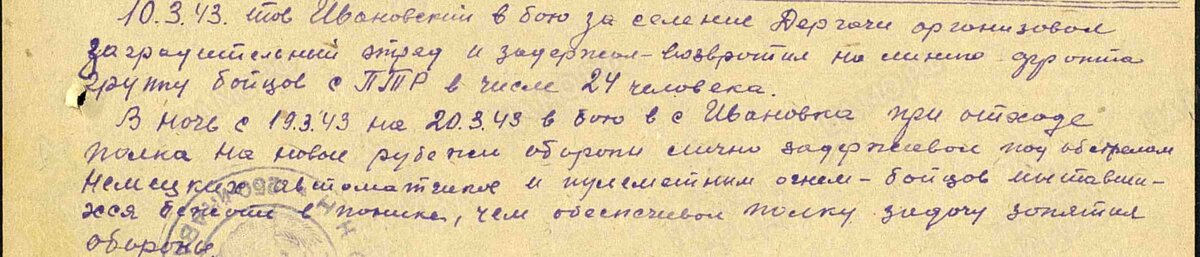 10.3.43. тов Ивановский в бою за селение Дергачи организовал
заградительний отряд и задержал-возвратил на линию фронта
группу бойцов с ПТР в числе 24 человека.
В ночь с 19.3.43 на 20.3.43 в бою в с Ивановка при отходе
полка на новые рубежи оборони лично задержевал под обстрелом
Немецких автоматчиков и пулеметним огнем - бойцов питавши-
хся бежать в панике, чем обеспечивал полку задачу занятия
оборони.